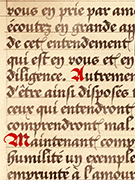 vous en prie par am
écoutez en grande ap
de cet entendement
qui est en vous et en
diligence. Autremen
d'être ainsi disposés
ceux qui entendront
comprendront mal.
Maintenant comp
humilité un exemple
emprunté à l'amour